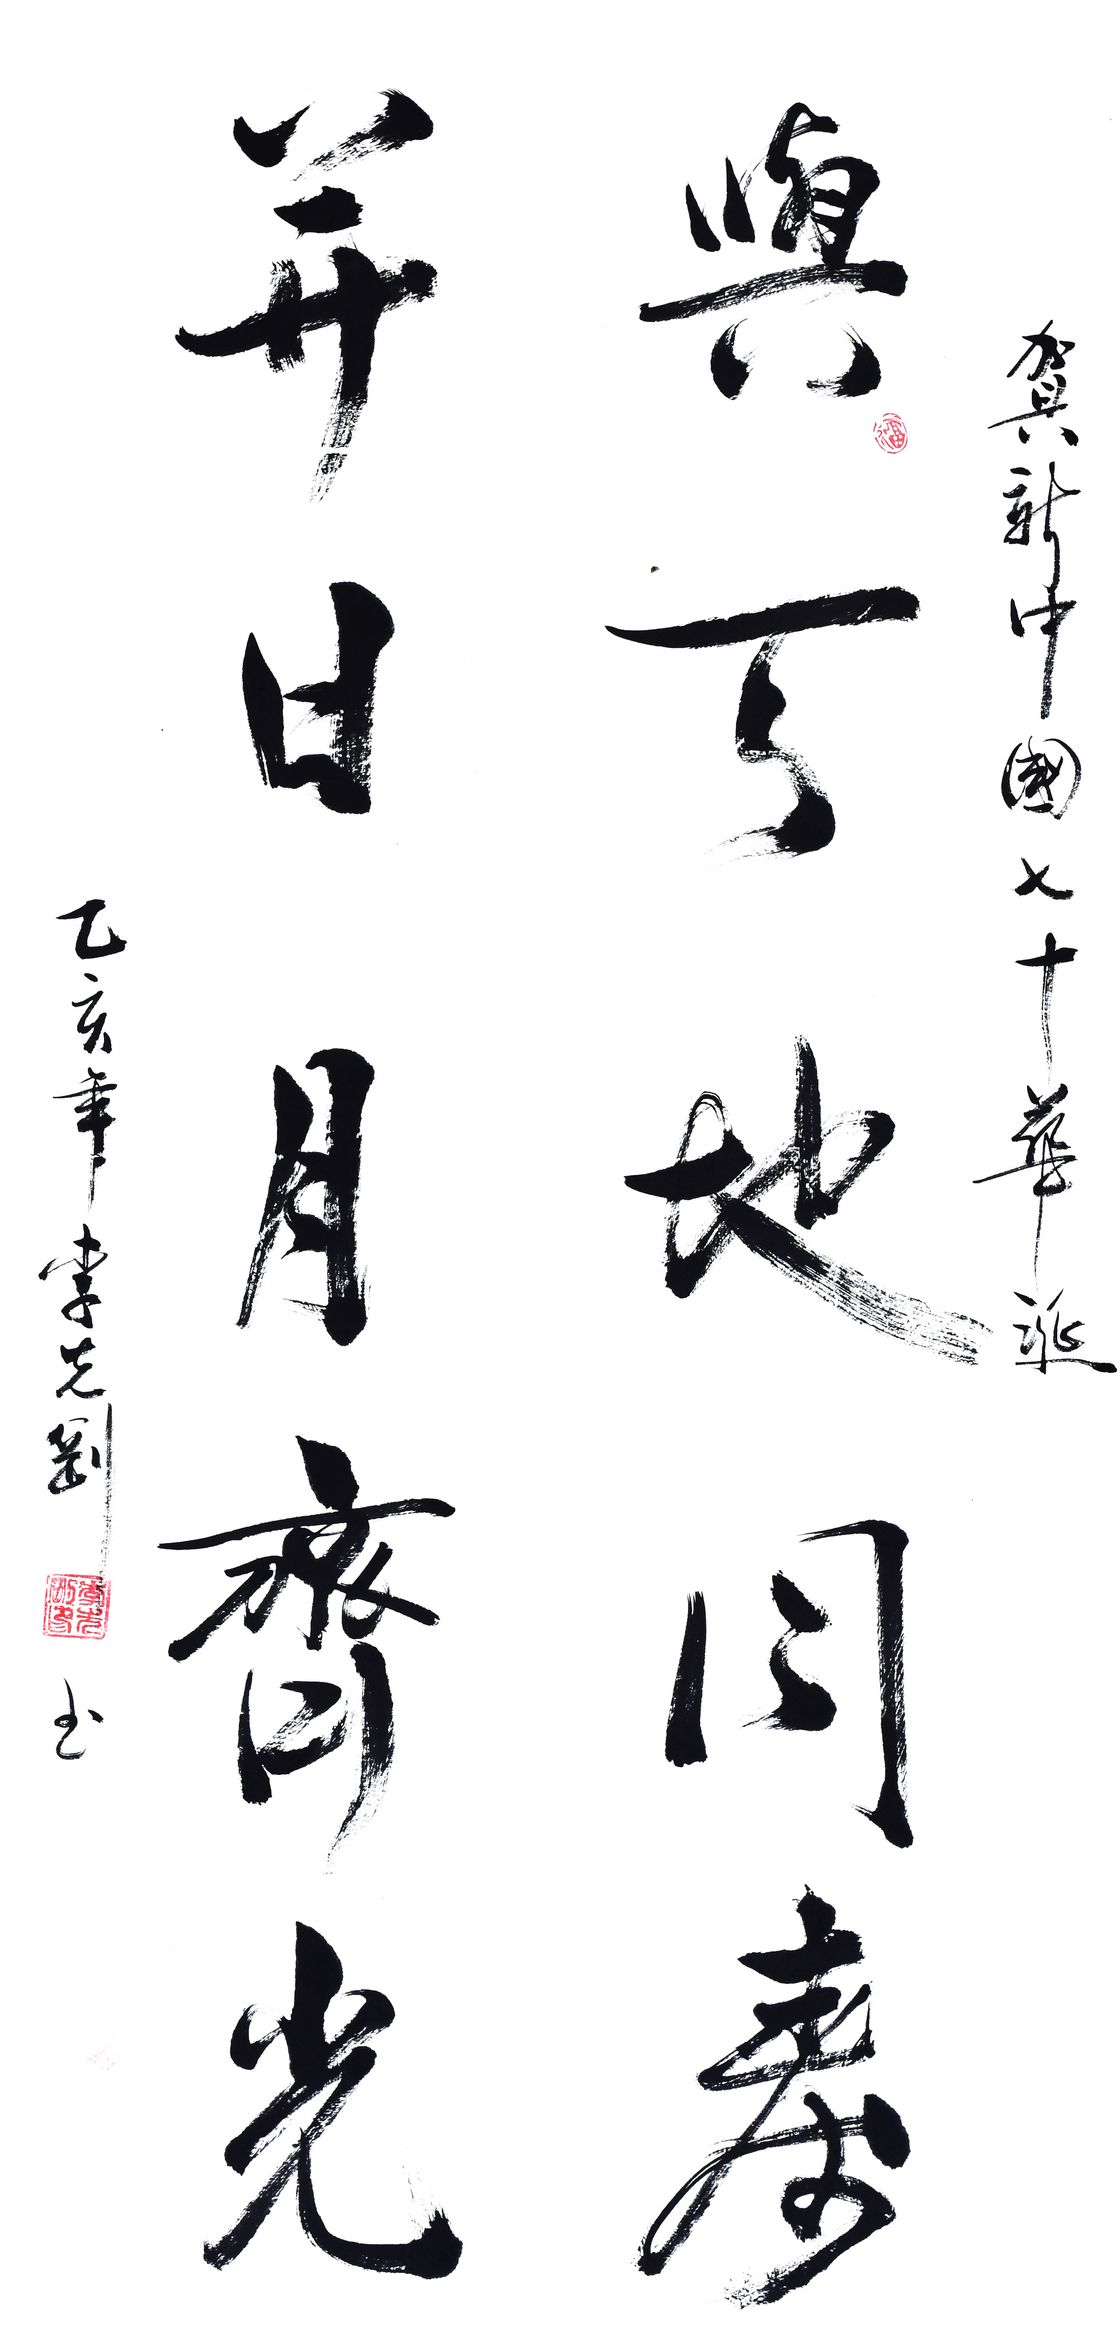 賀新中國七十華誕
與天地同壽
并日月齊光
己亥年李先剛书
福